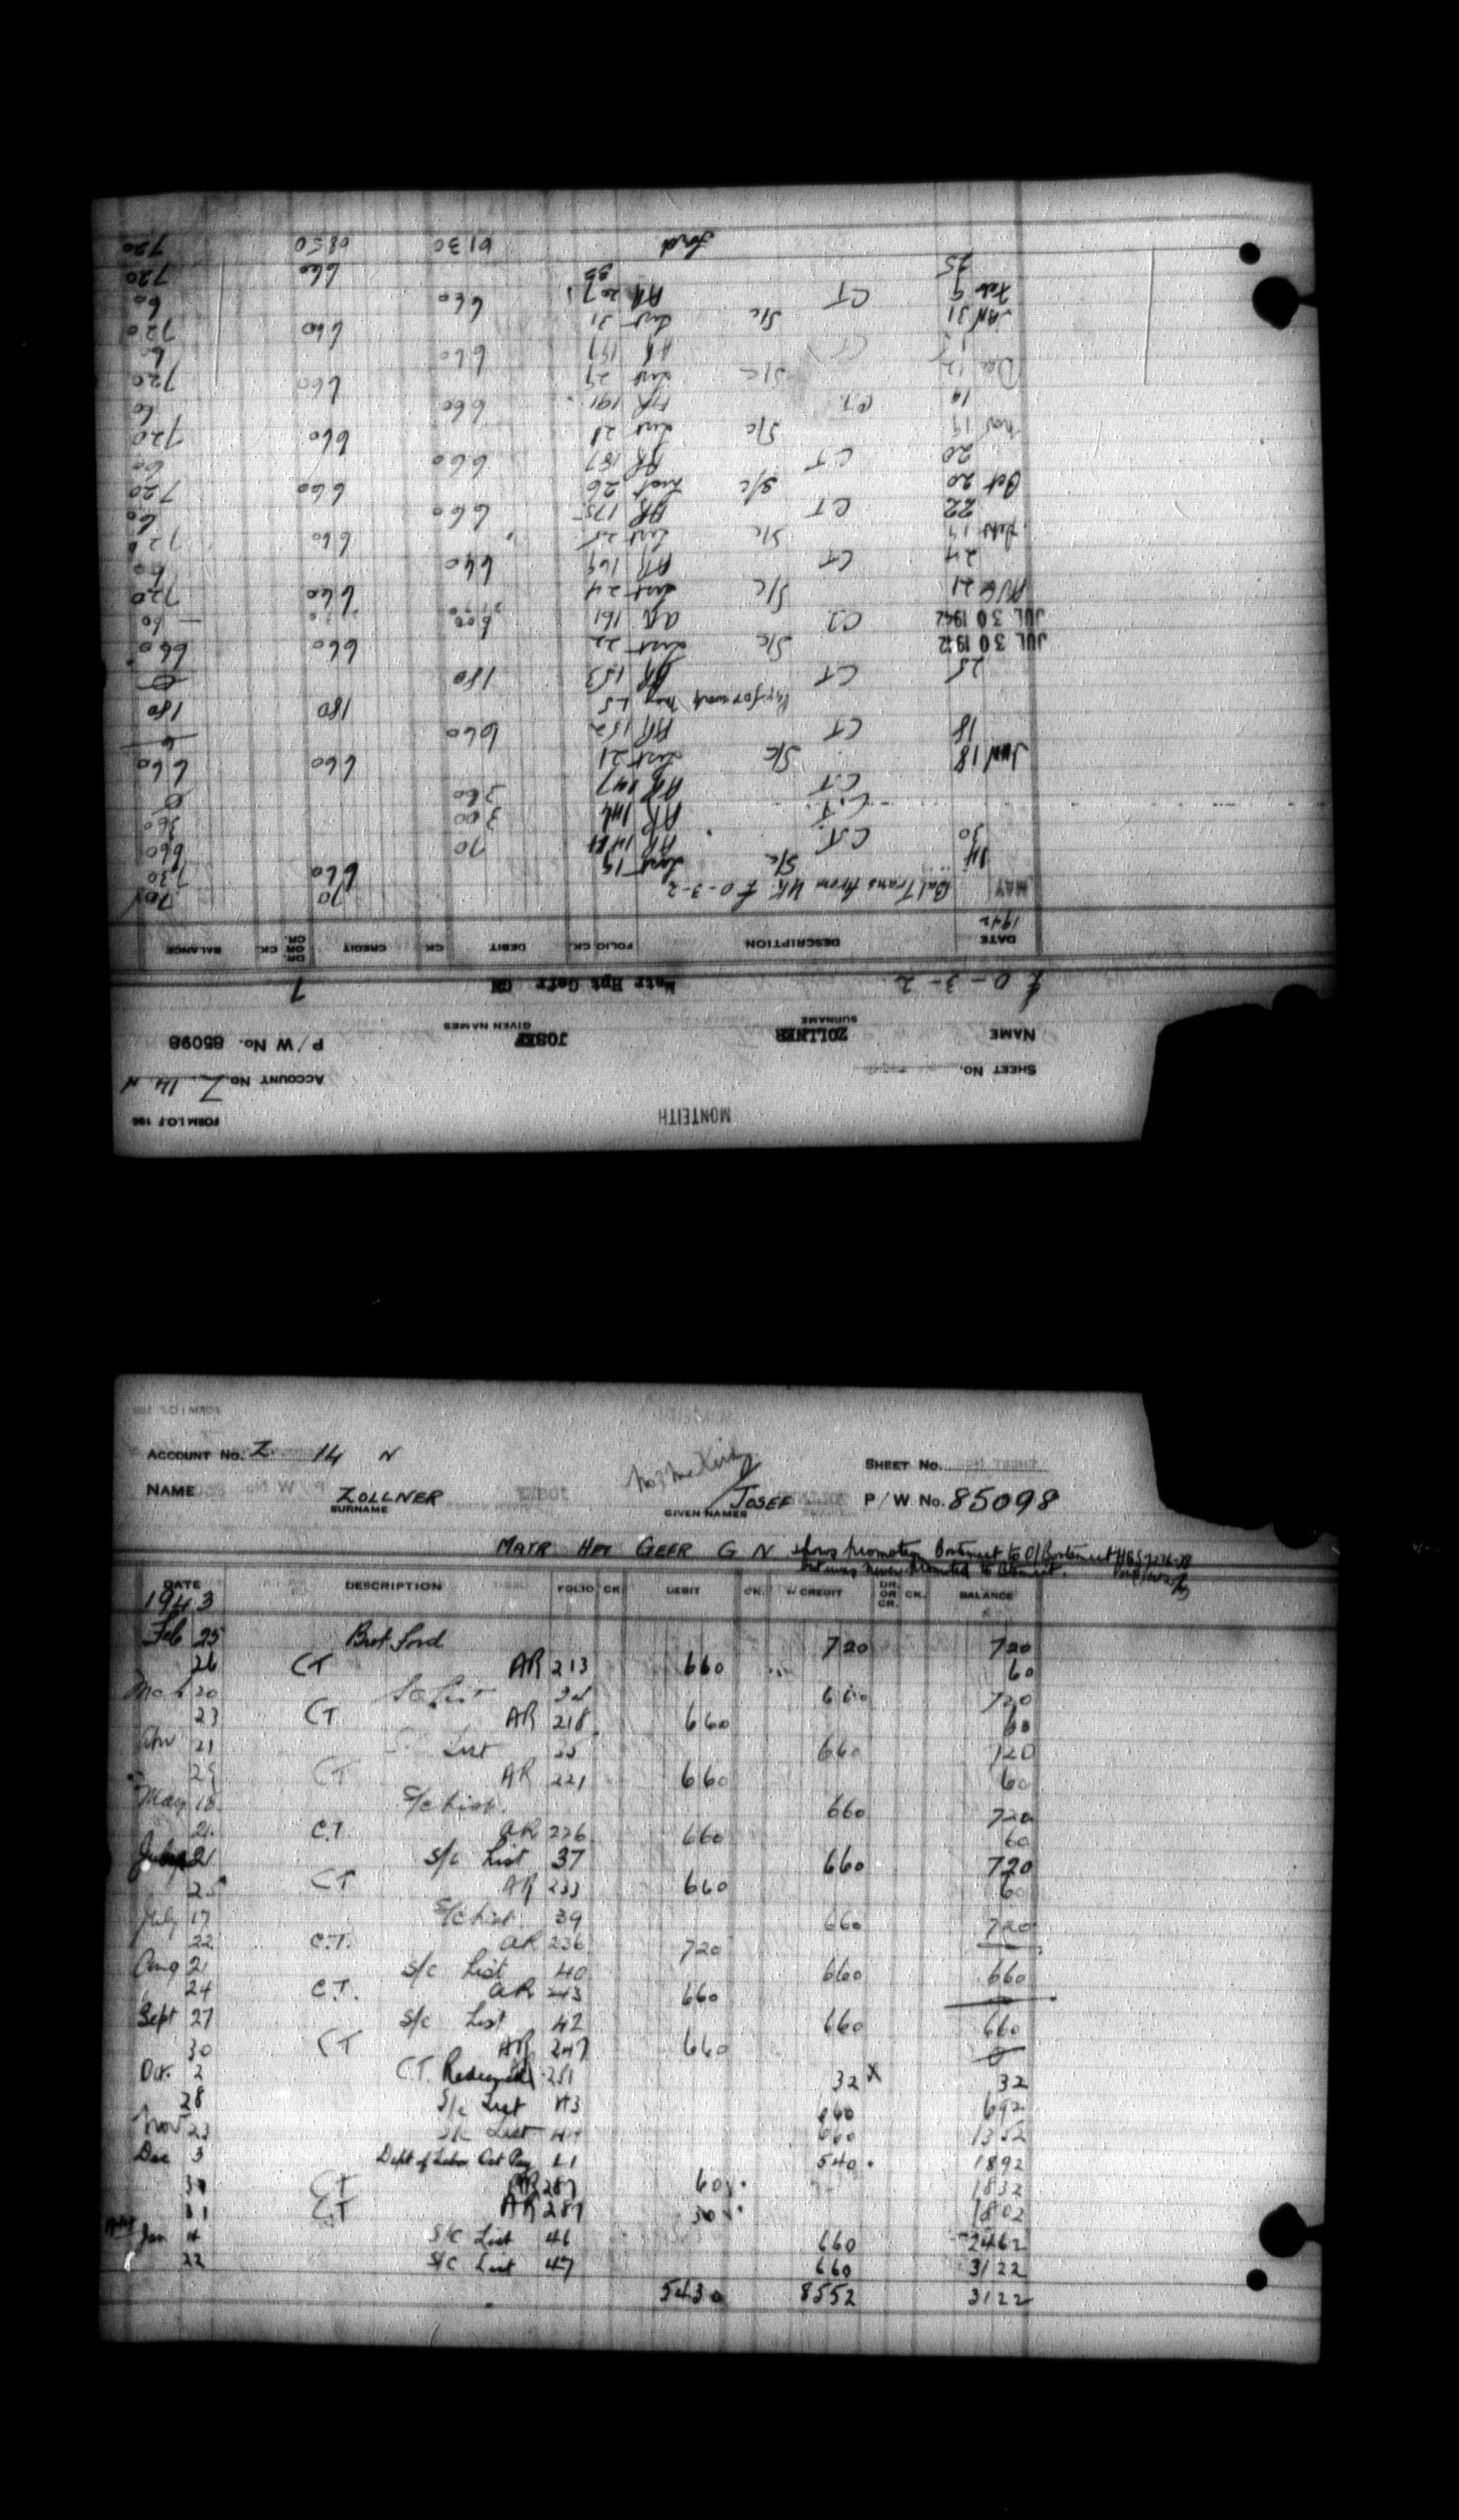 MONTEITH
FORM I.O.F. 106
SHEET NO. ACCOUNT NO. Z 14 N
NAME ZOLLNER JOSEF P/W No. 85098
SURNAME GIVEN NAMES
£ 0-3-2 Matr Hpt Gefr GN 7
DATE DESCRIPTION FOLIO CK. DEBIT CK. CREDIT DR. OR CR. CK. BALANCE
1942
MAY Bal Trans from UK £0-3-2 70 70
14 S/c List 19 660 730
30 C.T. AR 70 660
C.T. AR 144 300 360
C.T. AR 147 360 0
JUN 18 S/c List 21 660 660
18 CT AR 152 660
Pay for work May L5 180 180
25 CT AR 153 180
JUL 30 1942 S/c List 22 660 660
JUL 30 1942 CT AR 161 600 60
AUG 21 S/c List 24 660 720
24 CT AR 169 660 60
19 S/c List 25 660 720
22 CT AR 175 660 60
Oct 20 S/c List 26 660 720
20 CT AR 187 660 60
Nov 19 S/c List 660 720
19 CT AR 191 660 60
Dec 12 S/c List 29 660 720
CT AR 197 660 60
JAN 31 S/c List 31 660 720
Feb 9 CT AR 207 660 60
25 660 720
Ford 720
ACCOUNT NO. Z 14 N SHEET NO.
NAME ZOLLNER JOSEF P/W No. 85098
SURNAME GIVEN NAMES
MATR HPT GEFR G N
DATE DESCRIPTION FOLIO CK. DEBIT CK. CREDIT DR. OR CR. CK. BALANCE
1943
Feb 25 Brot Ford 720 720
26 CT AR 213 660 60
20 List 660 720
23 CT AR 218 660 60
21 List 35 660 720
CT AR 221 660 60
May 18 S/c List 660 720
21 C.T. AR 226 660 60
21 S/c List 37 660 720
25 CT AR 233 660 60
July 17 S/c List 39 660 720
22 C.T. AR 236 720
Aug 21 S/c List 40 660 660
24 C.T. AR 243 660
Sept 27 S/c List 42 660 660
30 CT AR 247 660 0
Oct. 2 C.T. Redeemed 251 32 X 32
28 S/c List 43 660 692
Nov 23 S/c List 44 660 1352
Dec 3 Dept of Labor Oct Pay 540 1892
CT AR 287 60 1832
31 CT AR 287 30 1802
Jan 4 S/C List 46 660 2462
22 S/C List 47 660 3122
5430 8552 3122